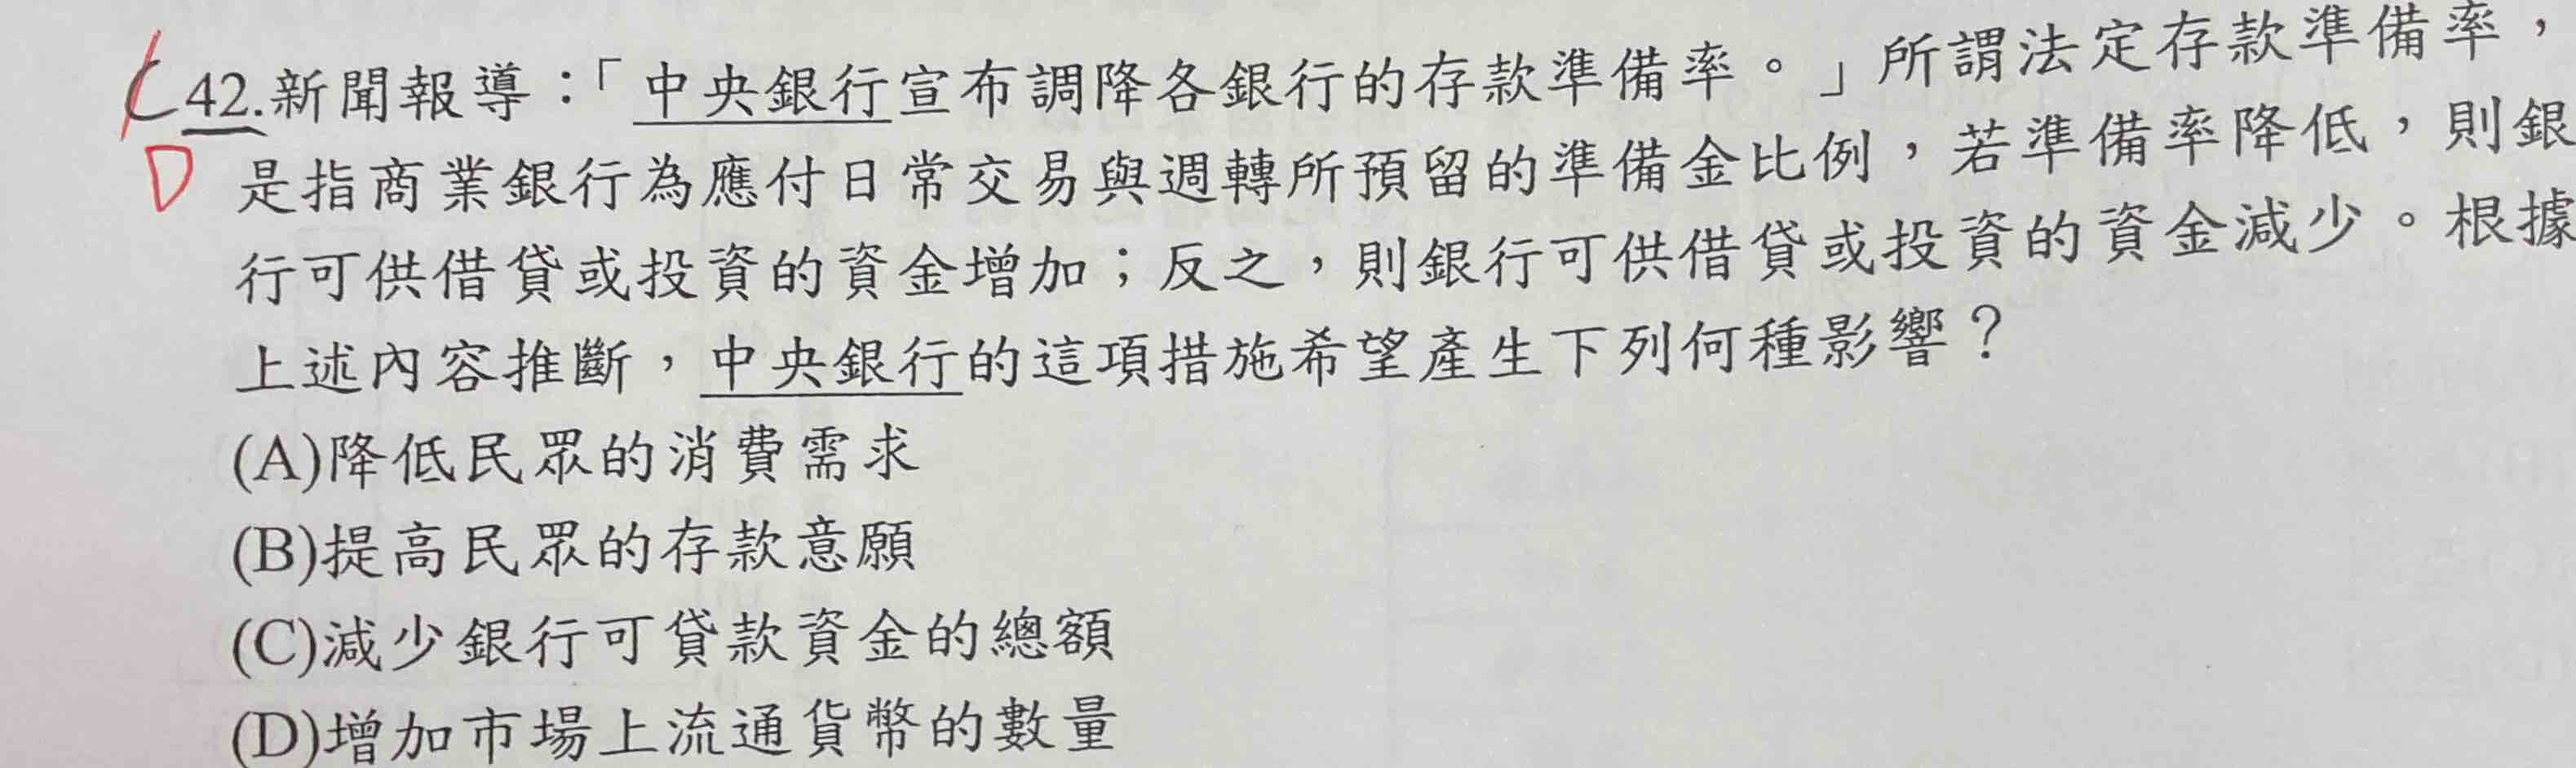 C 42.新聞報導：「中央銀行宣布調降各銀行的存款準備率。」所謂法定存款準備率，
D 是指商業銀行為應付日常交易與週轉所預留的準備金比例，若準備率降低，則銀
行可供借貸或投資的資金增加；反之，則銀行可供借貸或投資的資金減少。根據
上述內容推斷，中央銀行的這項措施希望產生下列何種影響？
(A)降低民眾的消費需求
(B)提高民眾的存款意願
(C)減少銀行可貸款資金的總額
(D)增加市場上流通貨幣的數量